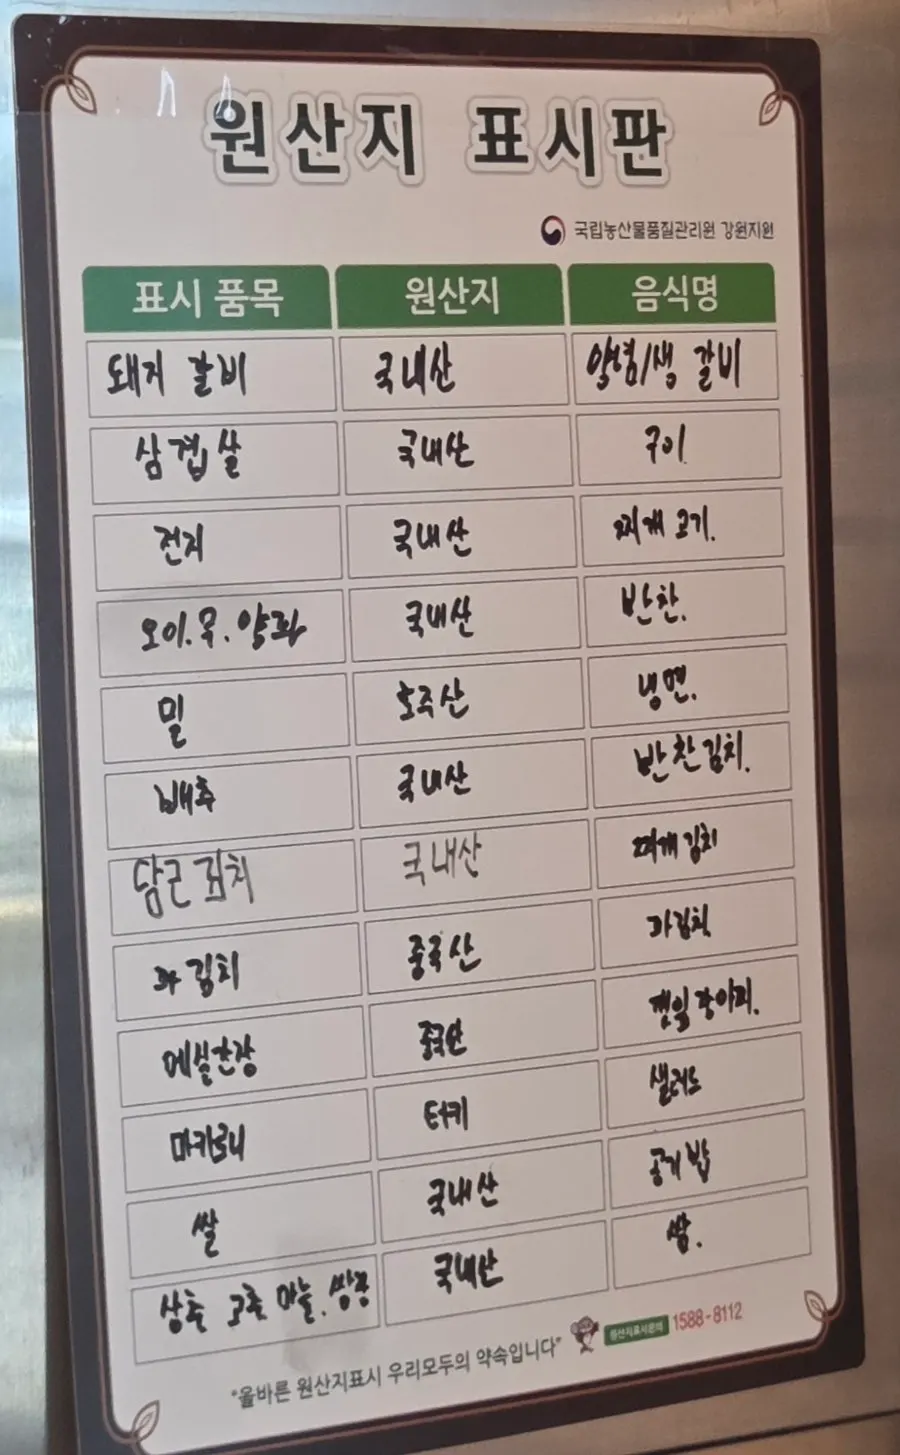 원산지 표시판
국립농산물품질관리원 강원지원
표시 품목 원산지 음식명
돼지 갈비 국내산 양념/생 갈비
삼겹살 국내산 구이.
전지 국내산 찌개 고기.
오이.무.양파 국내산 반찬.
밀 호주산 냉면.
배추 국내산 반찬김치.
담근김치 국내산 찌개김치
파김치 중국산 파김치
중국산 깻잎장아찌.
마카로니 터키 샐러드
쌀 국내산 공기밥
상추 고추 마늘. 국내산 쌈.
"올바른 원산지표시 우리모두의 약속입니다" 원산지표시문의 1588-8112